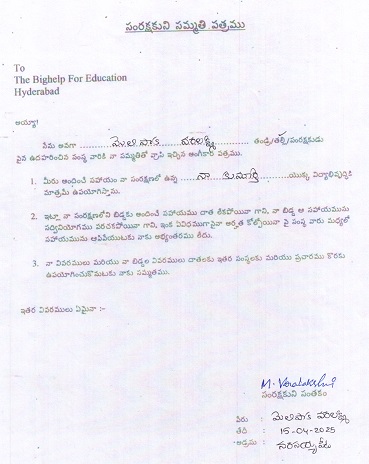 సంరక్షకుని సమ్మతి పత్రము
To
The Bighelp For Education
Hyderabad
అయ్యా!
నేను అనగా ................మెలిపాక వరలక్ష్మి................తండ్రి/తల్లి/సంరక్షకుడు
పైన ఉదహరించిన సంస్థ వారికి నా సమ్మతితో వ్రాసి ఇచ్చిన అంగీకార పత్రము.
1. మీరు అందించే సహాయం నా సంరక్షణలో ఉన్న ................నా కుమార్తె................యొక్క విద్యాభివృద్ధికి
మాత్రమే ఉపయోగిస్తాను.
2. ఇట్లా నా సంరక్షణలోని బిడ్డకు అందించే సహాయము చాత లేకపోయినా గాని, నా బిడ్డ ఆ సహాయమును
సద్వినియోగము పరచకపోయినా గాని, ఇంక ఏవిధముగానైనా అర్హత కోల్పోయినా పై సంస్థ వారు మధ్యలో
సహాయమును ఆపివేయుటకు నాకు అభ్యంతరము లేదు.
3. నా వివరములు మరియు నా బిడ్డల వివరములు దాతలకు ఇతర సంస్థలకు మరియు ప్రచారము కొరకు
ఉపయోగించుకొనుటకు నాకు సమ్మతము.
ఇతర వివరములు ఏమైనా :-
M. Varalakshmi
సంరక్షకుని సంతకం
పేరు : మెలిపాక వరలక్ష్మి
తేది : 15-04-2025
అడ్రసు : నరసయ్యపేట